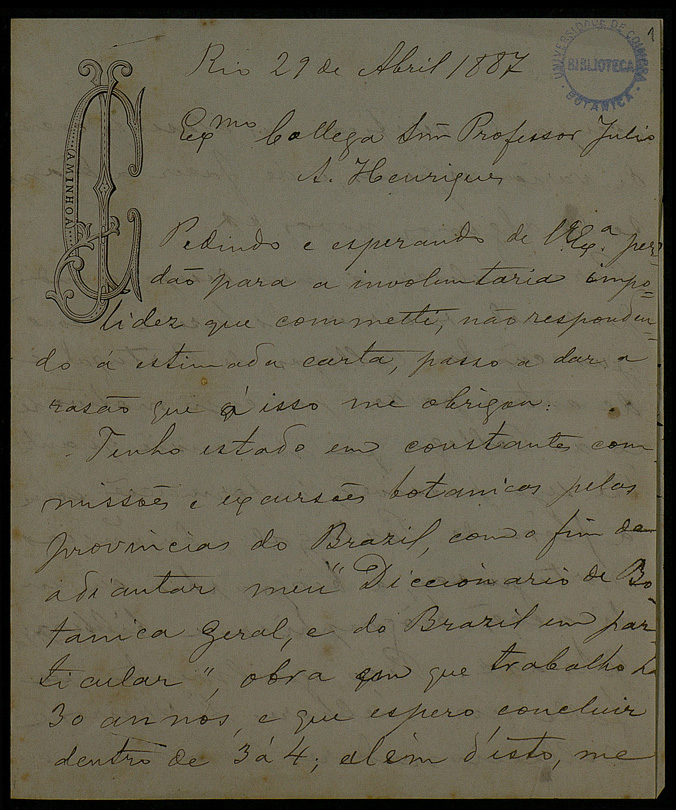 1
UNIVERSIDADE DE COIMBRA
BIBLIOTECA
BOTANICA
CAMINHOÁ
Rio 29 de Abril 1887
Exmo Collega Snr Professor Julio
A. Henriques
Pedindo e esperando de V. Exa. per-
dão para a involuntaria impo=
lidez que commetti, não responden-
do á estimada carta, passo a dar a
rasão que á isso me obrigou.
Tenho estado em constantes com
missões e excursões botanicas pelas
Provincias do Brazil, com o fim de
adiantar meu "Diccionario de Bo
tanica geral, e do Brazil em par
ticular", obra em que trabalho ha
30 annos, e que espero concluir
dentro de 3 á 4; além d'isto, me